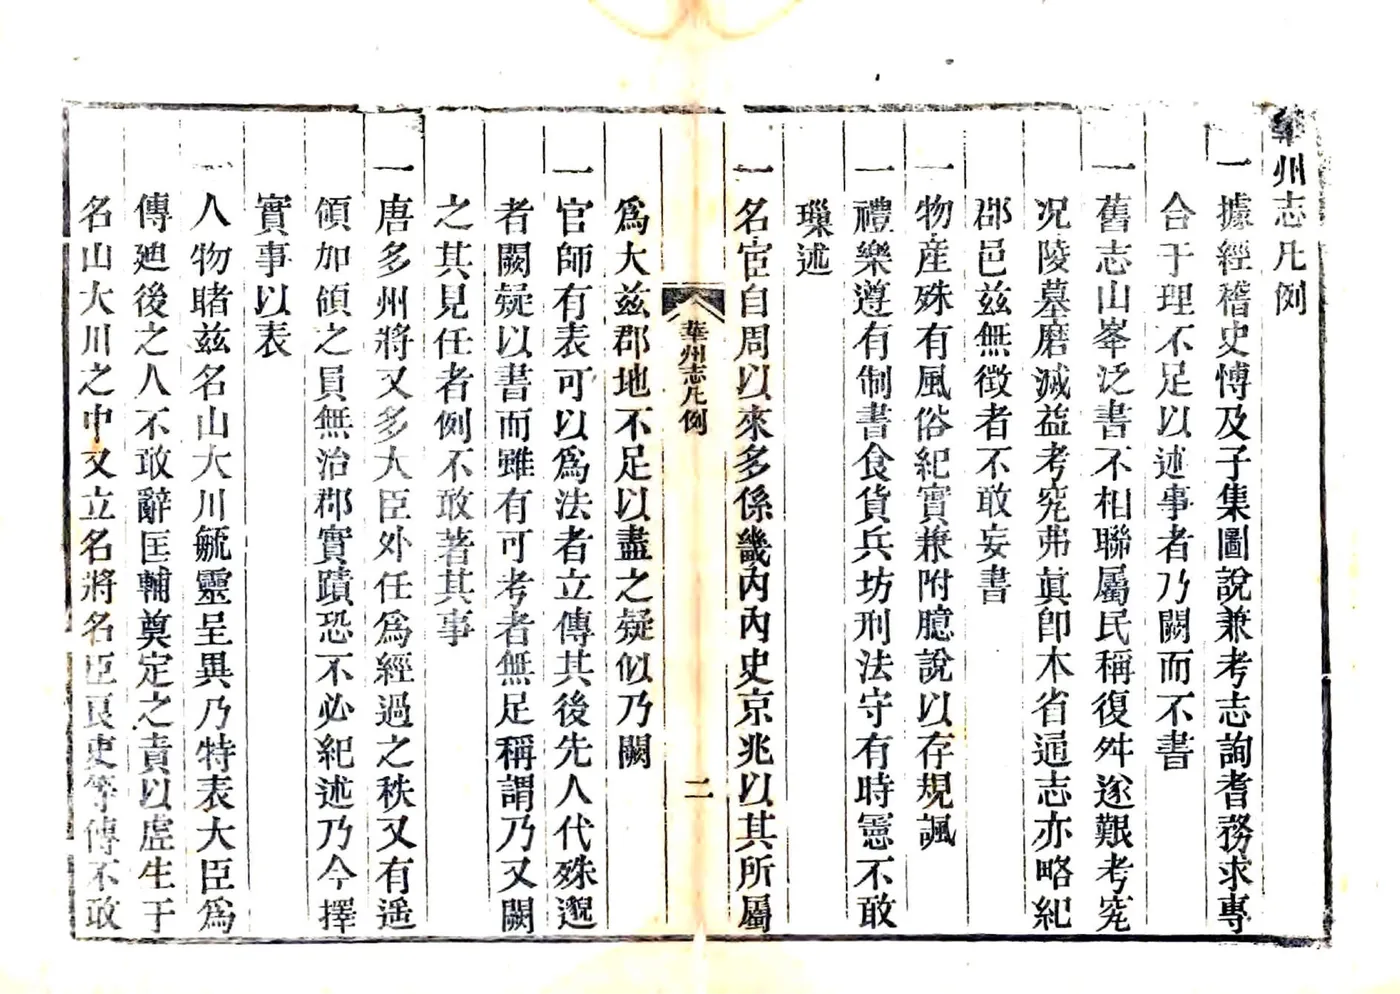 華州志凡例
一據經稽史博及子集圖說兼考志詢耆務求專
合于理不足以述事者乃闕而不書
一舊志山峯泛書不相聯屬民稱復舛遂艱考究
况陵墓磨滅益考究弗眞卽本省通志亦略紀
郡邑兹無徴者不敢妄書
一物產殊有風俗紀實兼附臆說以存規諷
一禮樂遵有制書食貨兵坊刑法守有時憲不敢
璅述
一名宦自周以來多係畿內內史京兆以其所屬
爲大兹郡地不足以盡之疑似乃闕
華州志凡例
二
一官師有表可以爲法者立傳其後先人代殊邈
者闕疑以書而雖有可考者無足稱謂乃又闕
之其見任者例不敢著其事
一唐多州將又多大臣外任爲經過之秩又有遥
領加領之員無治郡實蹟恐不必紀述乃今擇
實事以表
一人物睹兹名山大川毓靈呈異乃特表大臣爲
傳廸後之人不敢辭匡輔奠定之責以虛生于
名山大川之中又立名將名臣良史等傳不敢